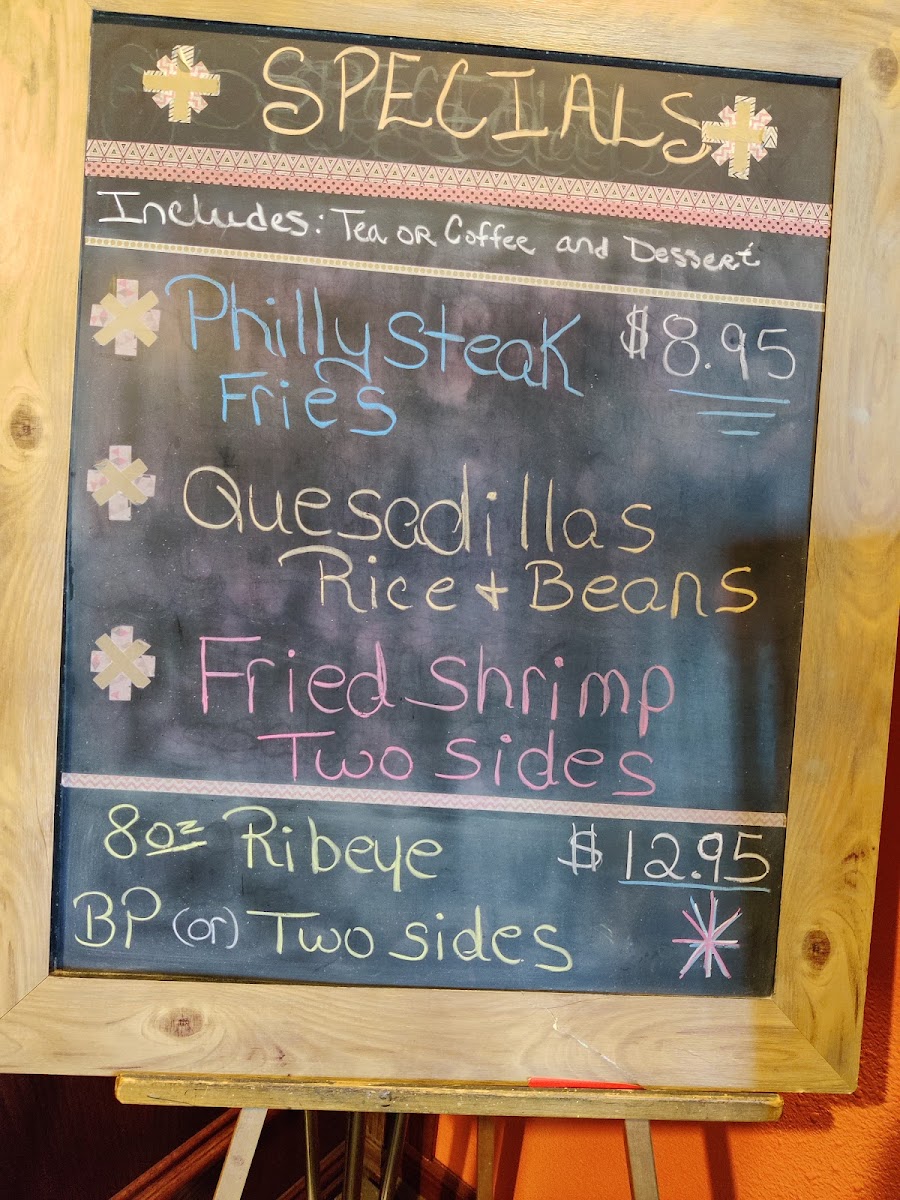 SPECIALS
Includes: Tea OR Coffee and Dessert
Philly Steak $8.95
Fries
Quesadillas
Rice + Beans
Fried Shrimp
Two sides
8oz Ribeye $12.95
BP (or) Two sides